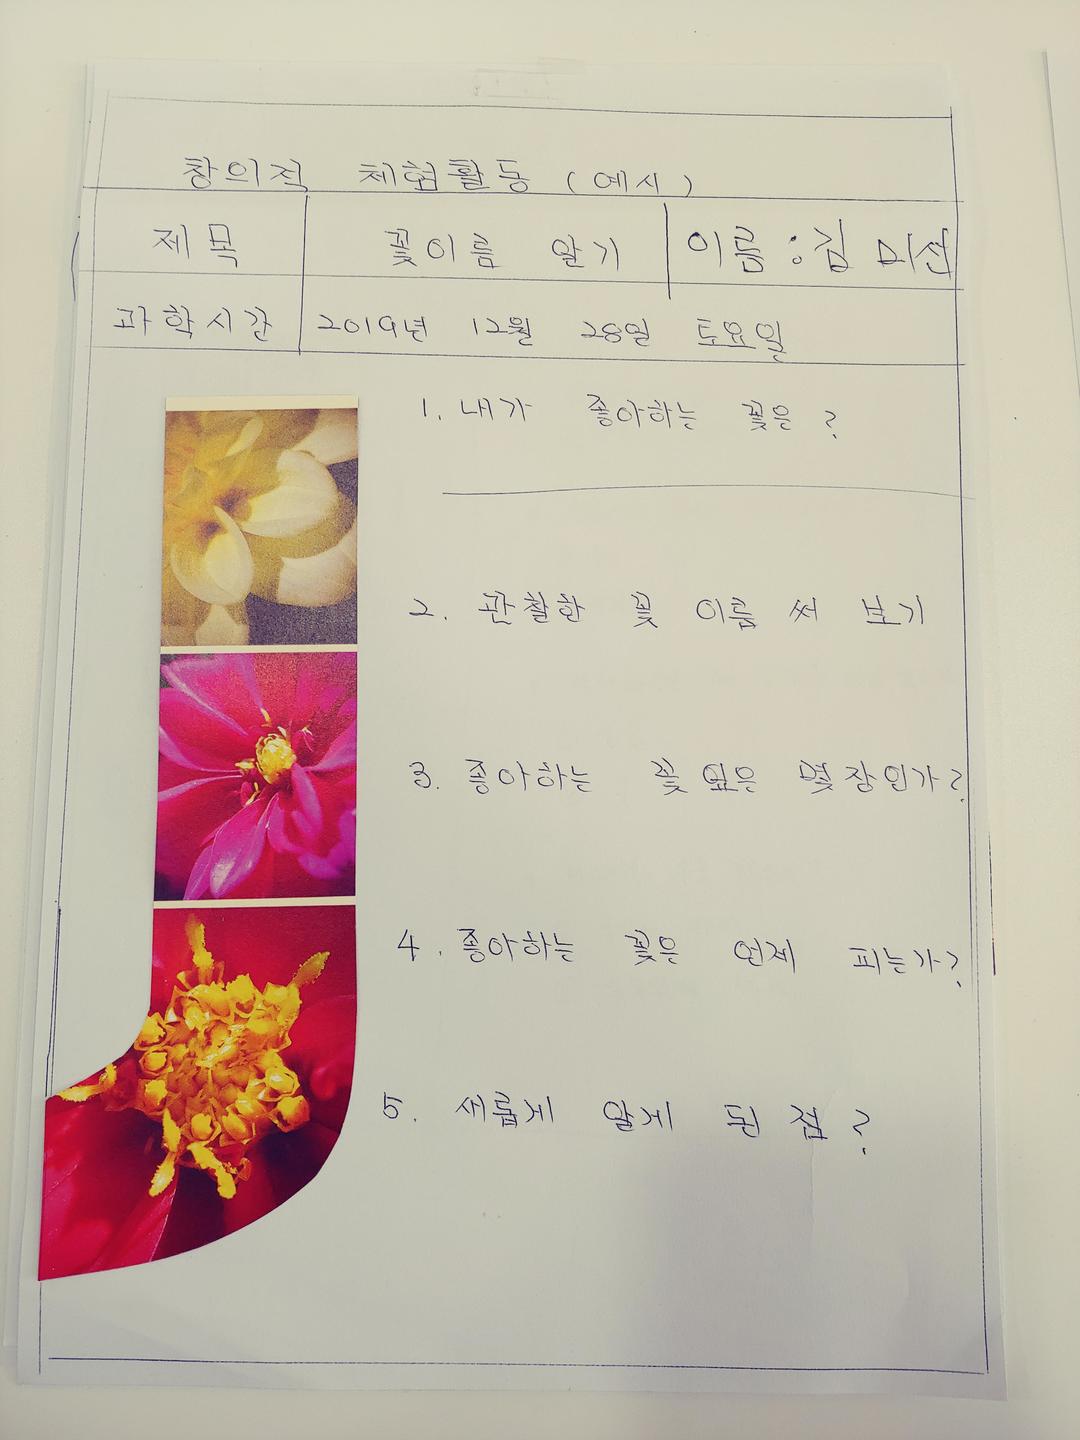 창의적 체험활동 (예시)
제목 꽃이름 알기 이름:김미선
과학시간 2019년 12월 28일 토요일
1. 내가 좋아하는 꽃은?
2. 관찰한 꽃 이름 써 보기
3. 좋아하는 꽃잎은 몇장인가?
4. 좋아하는 꽃은 언제 피는가?
5. 새롭게 알게 된 점?